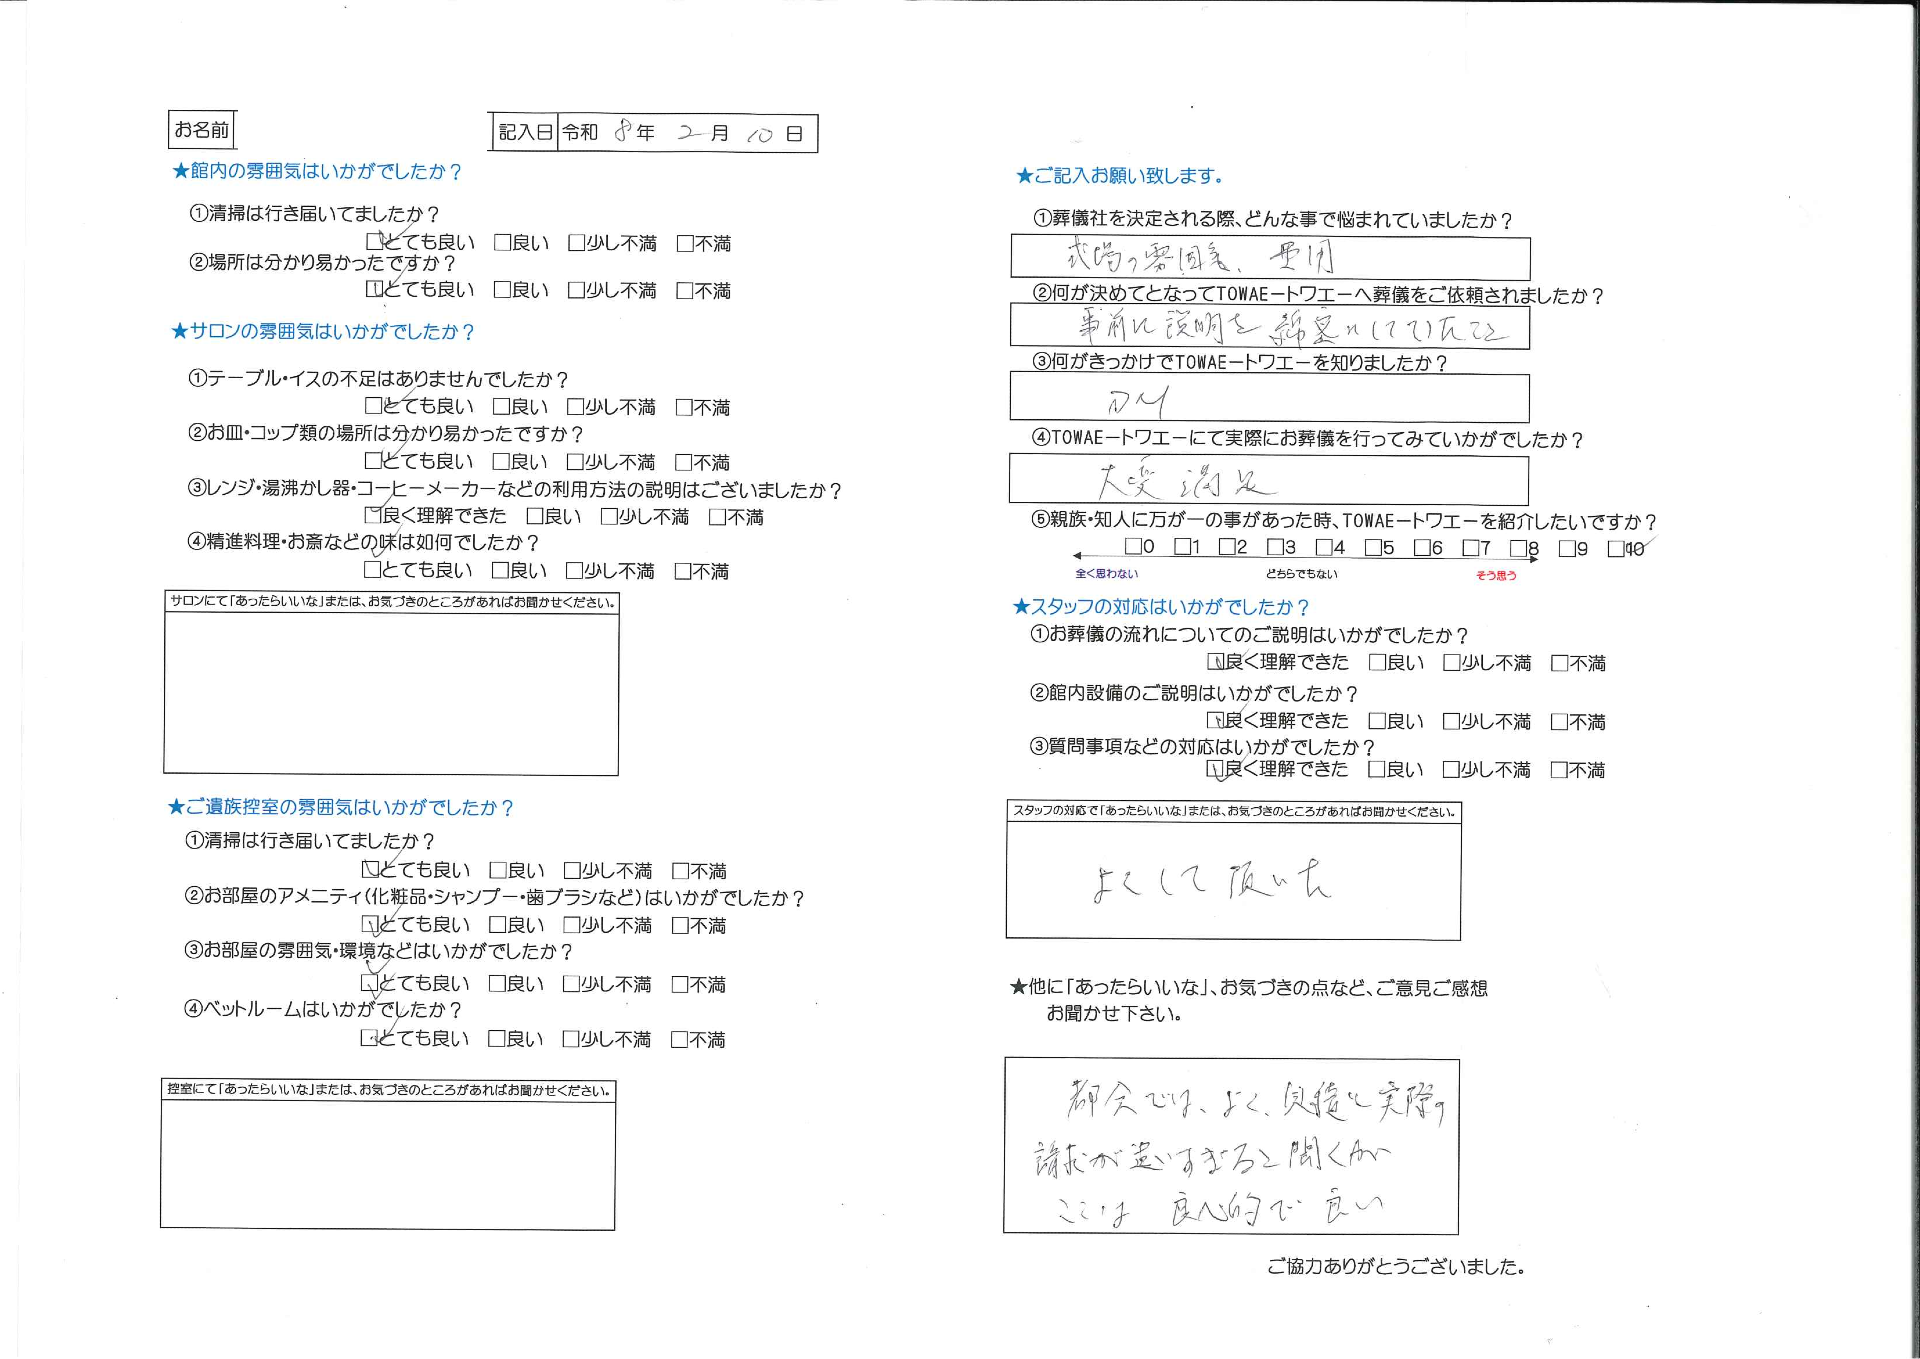 お名前
記入日 令和 8年 2月 10日
★館内の雰囲気はいかがでしたか？
①清掃は行き届いてましたか？
☑とても良い □良い □少し不満 □不満
②場所は分かり易かったですか？
☑とても良い □良い □少し不満 □不満
★サロンの雰囲気はいかがでしたか？
①テーブル・イスの不足はありませんでしたか？
☑とても良い □良い □少し不満 □不満
②お皿・コップ類の場所は分かり易かったですか？
☑とても良い □良い □少し不満 □不満
③レンジ・湯沸かし器・コーヒーメーカーなどの利用方法の説明はございましたか？
☑良く理解できた □良い □少し不満 □不満
④精進料理・お斎などの味は如何でしたか？
☑とても良い □良い □少し不満 □不満
サロンにて「あったらいいな」または、お気づきのところがあればお聞かせください。
★ご遺族控室の雰囲気はいかがでしたか？
①清掃は行き届いてましたか？
☑とても良い □良い □少し不満 □不満
②お部屋のアメニティ(化粧品・シャンプー・歯ブラシなど)はいかがでしたか？
☑とても良い □良い □少し不満 □不満
③お部屋の雰囲気・環境などはいかがでしたか？
☑とても良い □良い □少し不満 □不満
④ベットルームはいかがでしたか？
☑とても良い □良い □少し不満 □不満
控室にて「あったらいいな」または、お気づきのところがあればお聞かせください。
★ご記入お願い致します。
①葬儀社を決定される際、どんな事で悩まれていましたか？
式場の雰囲気、費用
②何が決めてとなってTOWAEートワエーへ葬儀をご依頼されましたか？
事前に説明を綿密にしていたこと
③何がきっかけでTOWAEートワエーを知りましたか？
DM
④TOWAEートワエーにて実際にお葬儀を行ってみていかがでしたか？
大変満足
⑤親族・知人に万が一の事があった時、TOWAEートワエーを紹介したいですか？
□0 □1 □2 □3 □4 □5 □6 □7 □8 □9 ☑10
全く思わない どちらでもない そう思う
★スタッフの対応はいかがでしたか？
①お葬儀の流れについてのご説明はいかがでしたか？
☑良く理解できた □良い □少し不満 □不満
②館内設備のご説明はいかがでしたか？
☑良く理解できた □良い □少し不満 □不満
③質問事項などの対応はいかがでしたか？
☑良く理解できた □良い □少し不満 □不満
スタッフの対応で「あったらいいな」または、お気づきのところがあればお聞かせください。
よくして頂いた
★他に「あったらいいな」、お気づきの点など、ご意見ご感想
お聞かせ下さい。
都会では、よく、見積と実際の
請求が違いすぎると聞くが
ここは 良心的で 良い
ご協力ありがとうございました。